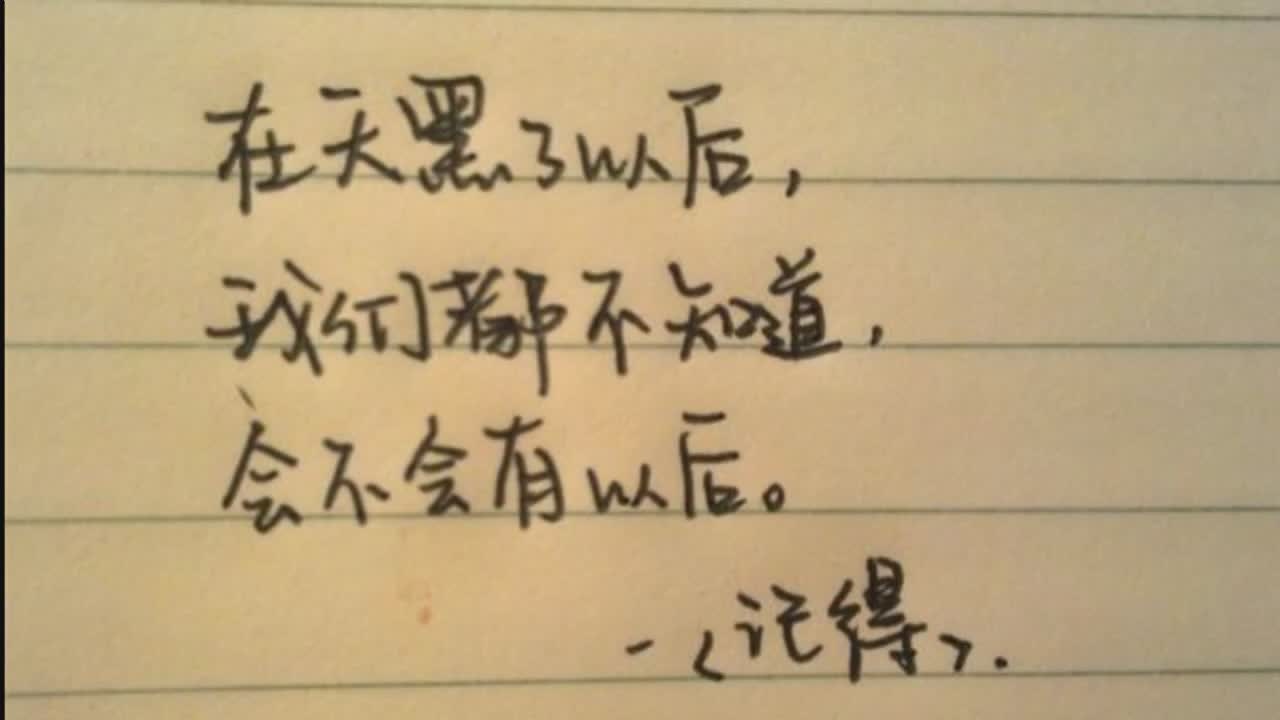 在天黑了以后,
我们都不知道,
会不会有以后。
-〈记得〉.